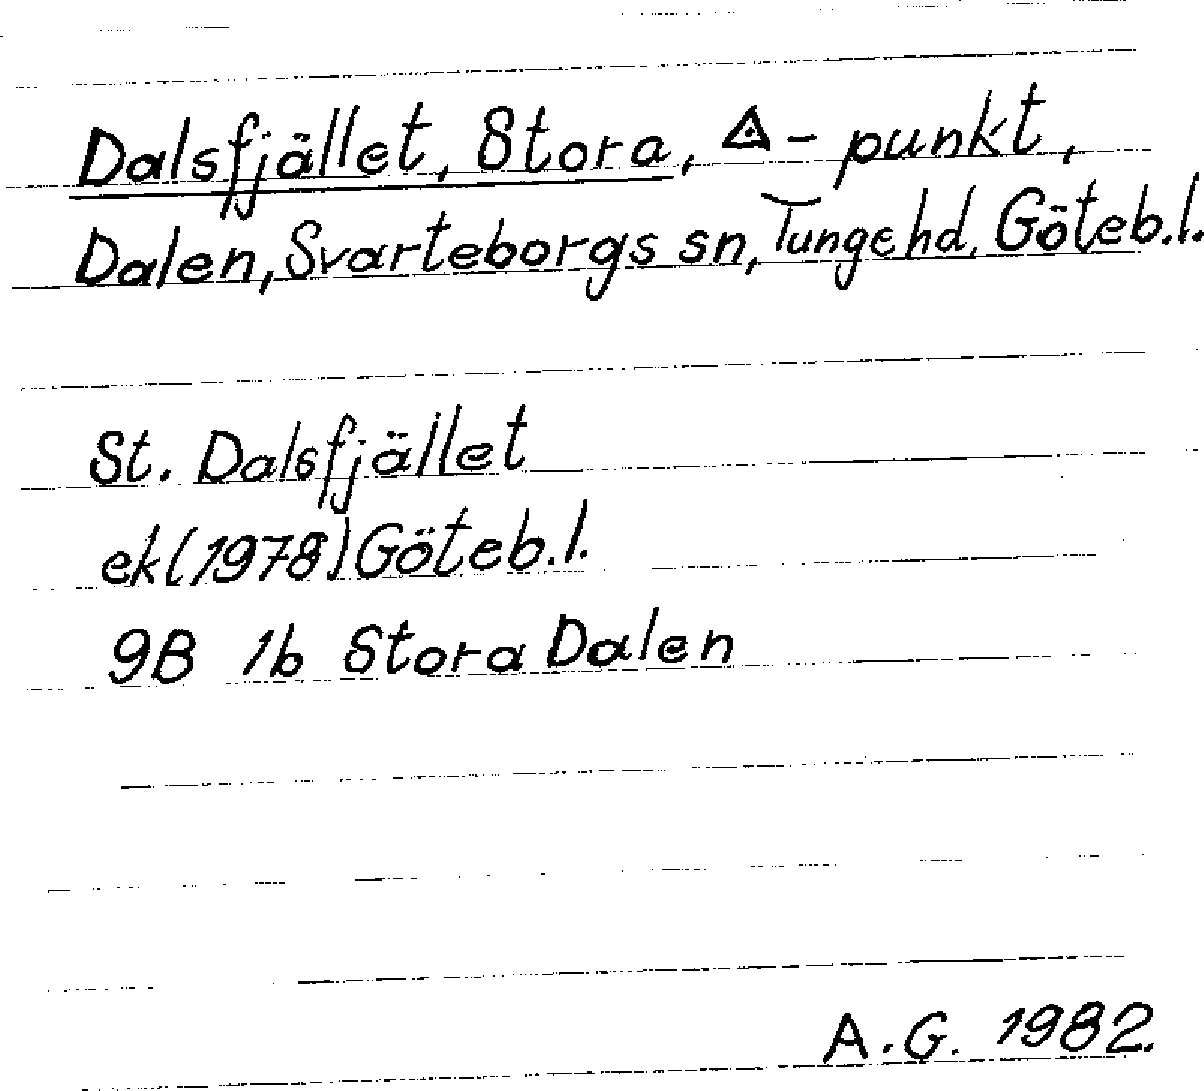 Dalsfjället, Stora, ◬ - punkt,
Dalen, Svarteborgs sn, Tunge hd, Göteb.l.
St. Dalsfjället
ek (1978) Göteb.l.
9B 1b Stora Dalen
A.G. 1982.